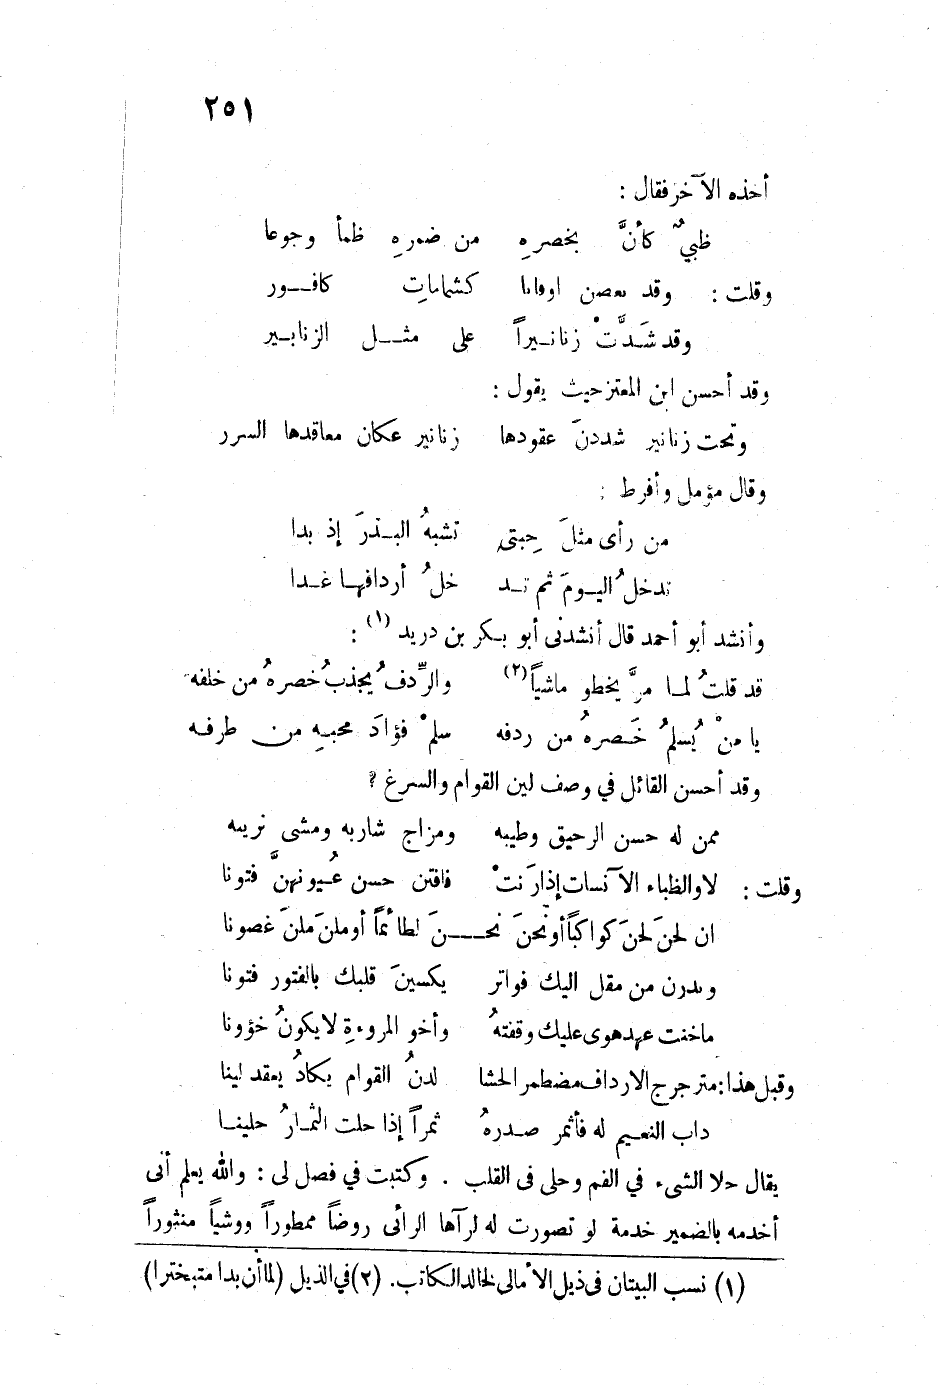 ٢٥١
أخذه الآخر فقال :
ظبيٌ كأنَّ بخصرهِ من ضمرهِ ظمأ وجوعا
وقلت : وقد كشمامات كافــور
وقد شَدَّتْ زنانــيراً على مثــل الزنابــير
وقد أحسن ابن المعتز حيث يقول :
وتحت زنانير شددنَ عقودها زنانير عكان معاقدها السرر
وقال مؤمل وأفرط :
من رأى مثلَ حِبتي تشبهُ البــدرَ إذ بدا
تدخلُ اليــومَ ثم تــد خلُ أردافهــا غــدا
وأنشد أبو أحمد قال أنشدنى أبو بكر بن دريد (١) :
قد قلتُ لمــا مرَّ يخطو ماشياً (٢) والرِّدفُ يُجذبُ خصرهُ من خلفه
يا منْ يُسلمُ خَصرهُ من ردفه سلمْ فؤادَ محبهِ من طرفه
وقد أحسن القائل في وصف لين القوام والسرغ ?
ممن له حسن الرحيق وطيبه ومزاج شاربه ومشى نزيبه
وقلت : لا والظباء الآنسات إذا رَنتْ فافتن حسن عُيونهنَّ فتونا
ان لحنَ لحنَ كواكباً أو نحنَ نحــنَ لطائماً أو ملنَ ملنَ غصونا
من مقل اليك فواتر يكسينَ قلبك بالفتور فتونا
ما خنت عهد هوى عليك وقفتهُ وأخو المروءةِ لا يكونُ خؤونا
وقبل هذا: مترجرج الارداف مضطمر الحشا لدنُ القوام يكادُ يعقد لينا
داب النعــيم له فأثمر صــدرهُ ثمراً إذا حلت الثمارُ حلينــا
يقال حلا الشىء في الفم وحلى فى القلب . وكتبت في فصل لى : والله يعلم أنى
أخدمه بالضمير خدمة لو تصورت له لرآها الرائى روضاً ممطوراً ووشياً منثوراً
(١) نسب البيتان فى ذيل الأمالى لخالد الكاتب. (٢) في الذيل (لما أن بدا متبخترا)